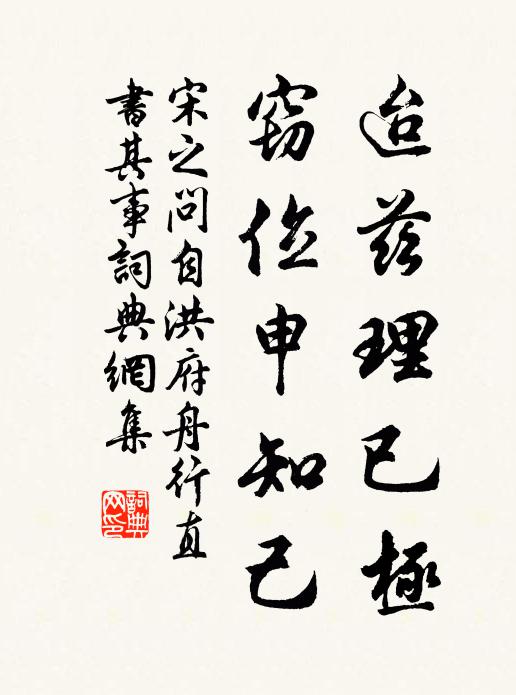 迨茲理已極
竊位申知己
宋之問自洪府舟行直
書其事詞典網集
詞典网印